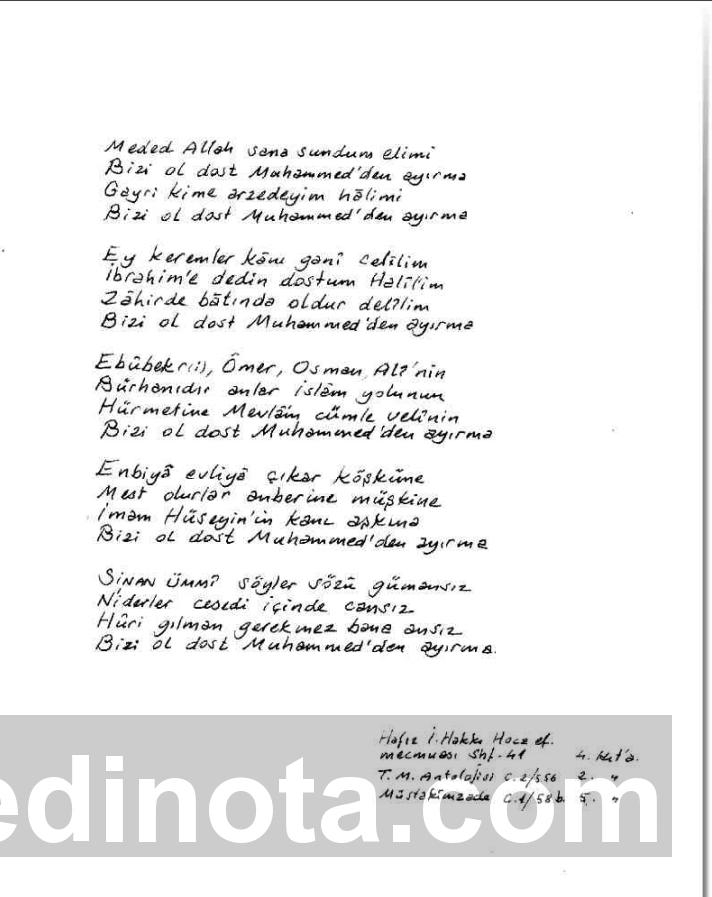 Meded Allah sana sundum elimi
Bizi ol dost Muhammed'den ayırma
Gayri kime arzedeyim hâlimi
Bizi ol dost Muhammed'den ayırma
Ey keremler kânı ganî celîlim
İbrahim'e dedin dostum Halîlim
Zâhirde bâtında oldur delîlim
Bizi ol dost Muhammed'den ayırma
Ebûbekr(i), Ömer, Osman, Alî'nin
Bürhanıdır anlar islâm yolunun
Hürmetine Mevlâm cümle velînin
Bizi ol dost Muhammed'den ayırma
Enbiyâ evliyâ çıkar köşküne
Mest olurlar anberine müşkine
İmam Hüseyin'in kanı aşkına
Bizi ol dost Muhammed'den ayırma
SİNAN ÜMMÎ söyler sözü gümansız
Niderler cesedi içinde cansız
Hûri gılman gerekmez bana ansız
Bizi ol dost Muhammed'den ayırma.
Hafız İ. Hakkı Hoca ef.
mecmuası Shf. 41 4. kıt'a.
T. M. Antolojisi C.2/556 2. "
Müstakimzade C.1/58b. 5. "
edinota.com